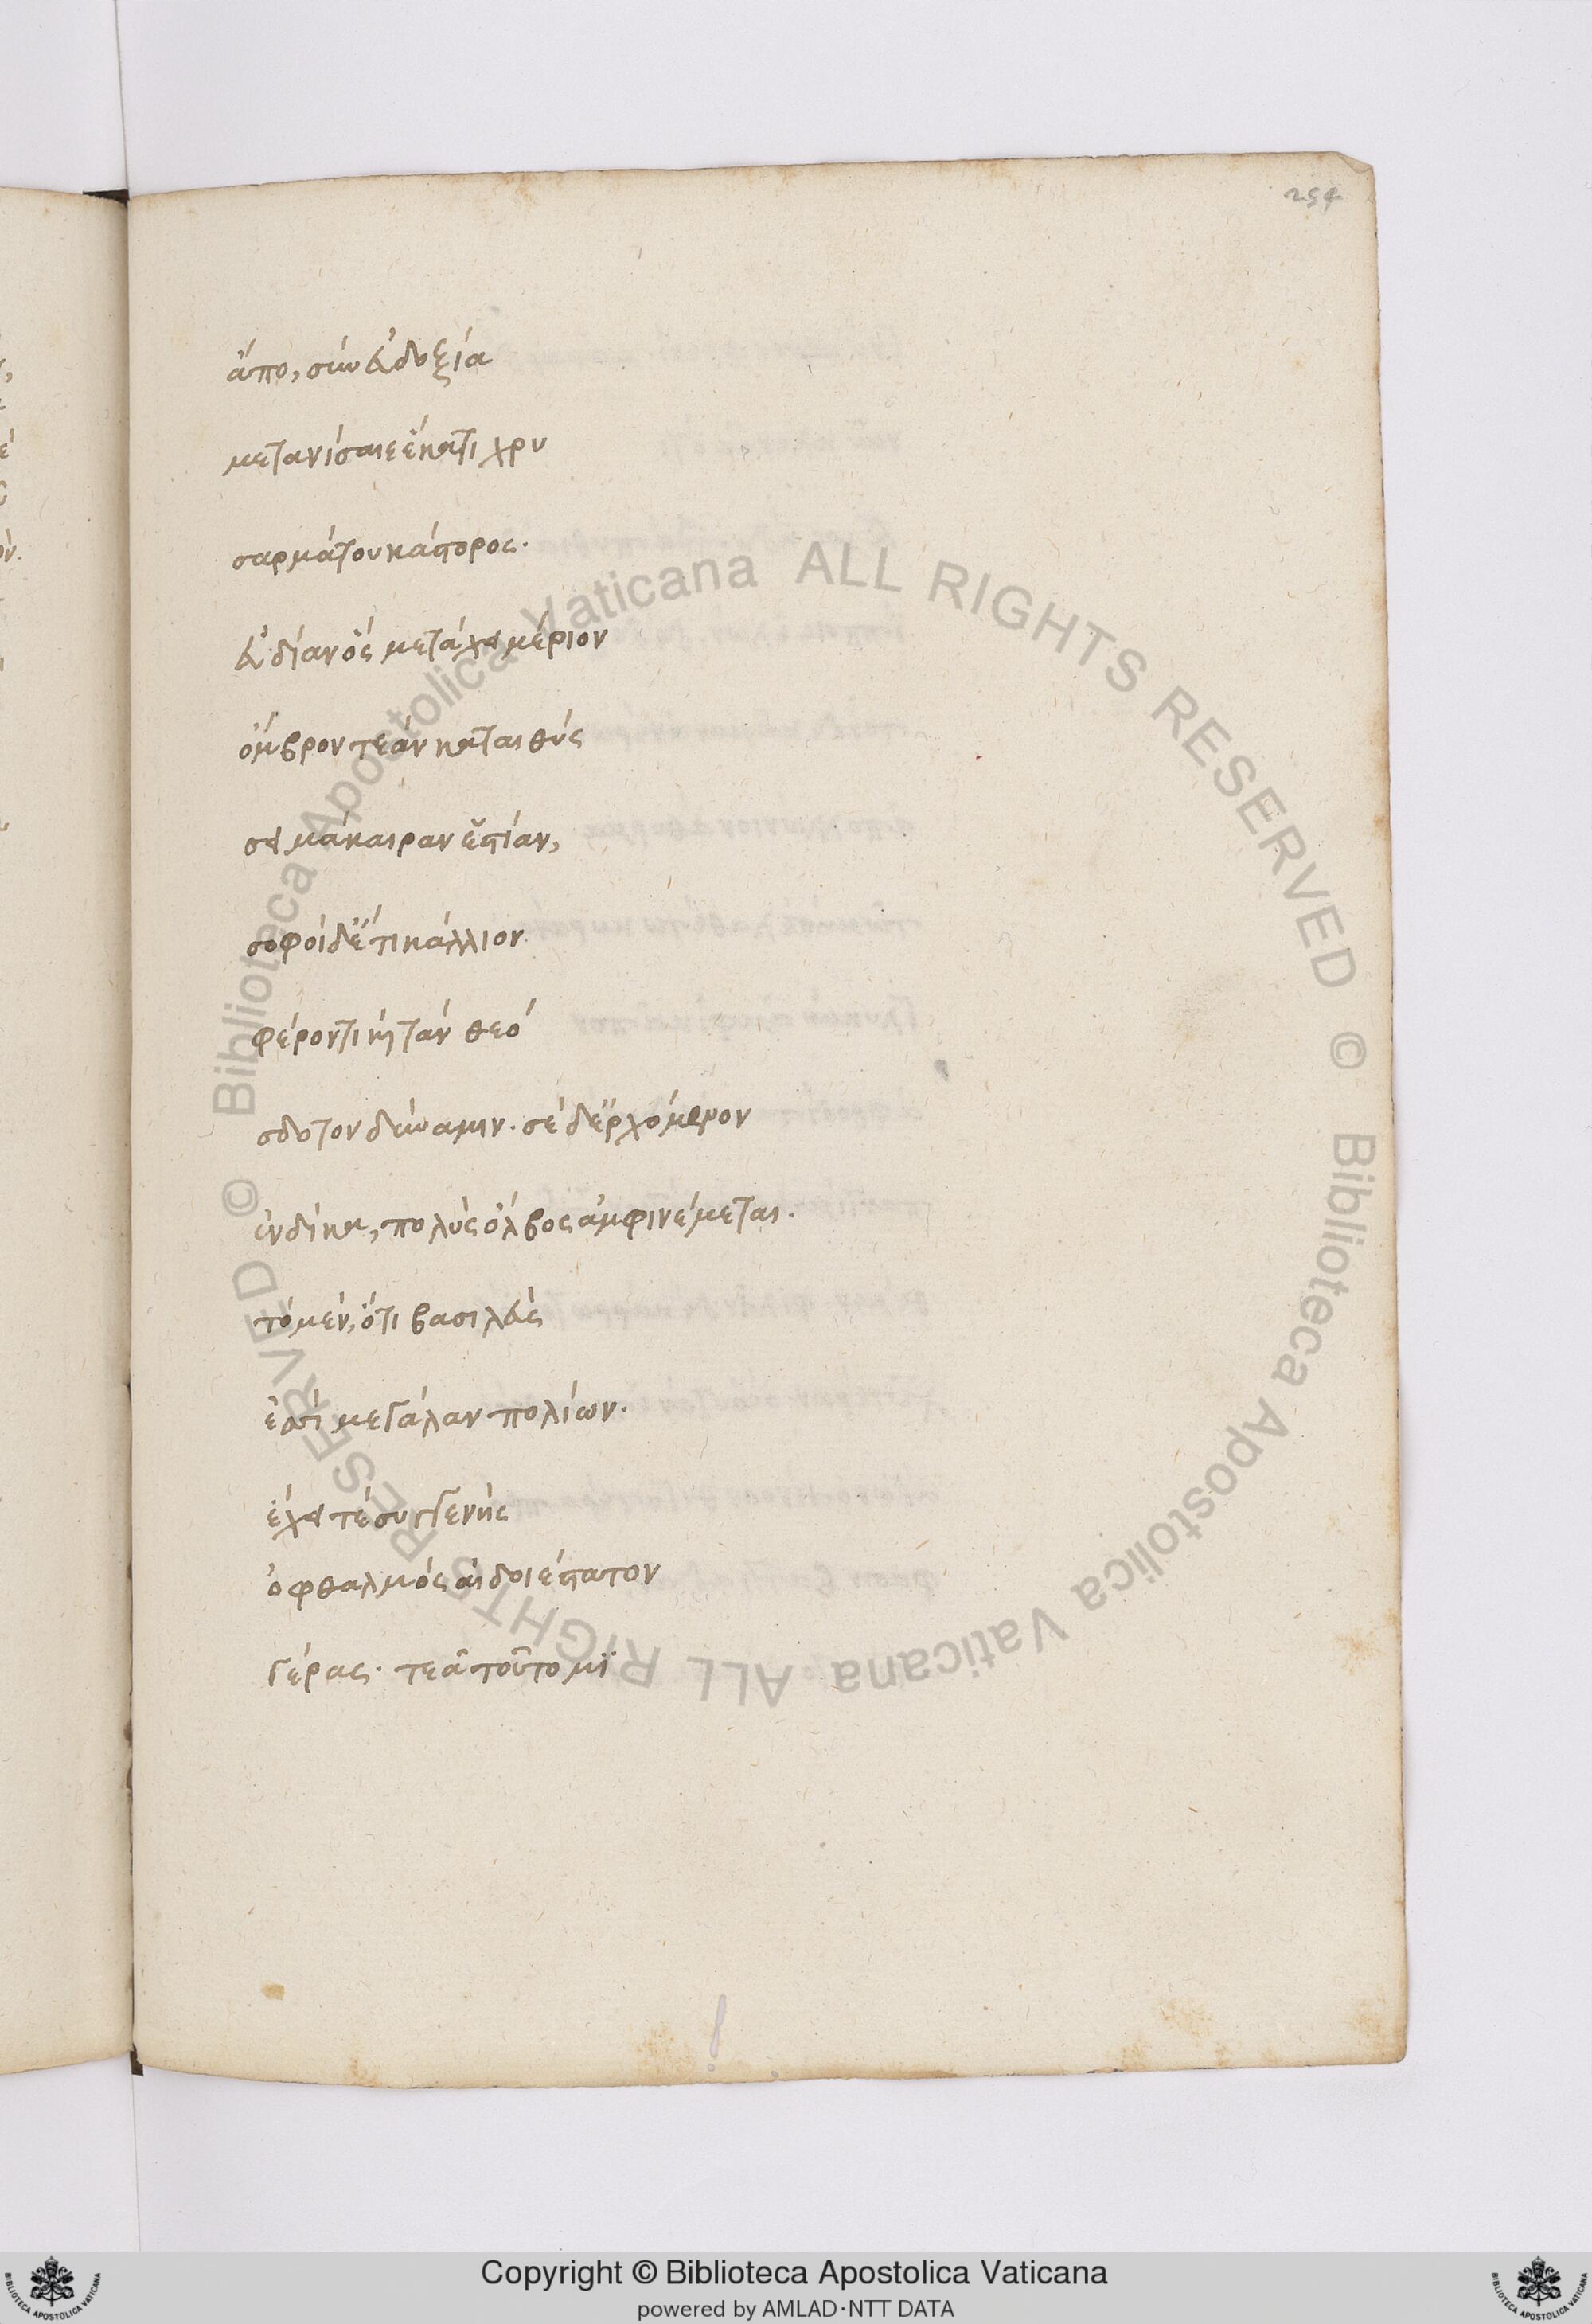 254
ἄπο, σὺν εὐδοξία
μετανίσαιε ἕκατι χρυ
σαρμάτου κάστορος.
εὐδίαν ὃς μετὰ χειμέριον
ὄμβρον τεὰν καταιθύσ
σει μάκαιραν ἑστίαν,
σοφοὶ δέ τι κάλλιον
φέροντι κỳ τὰν θεό
σδοτον δύναμιν. σὲ δ' ἐρχόμενον
ἐν δίκα, πολὺς ὄλβος ἀμφινέμεται.
τὸ μὲν, ὅτι βασιλεὺς
ἐσσὶ μεγάλαν πολίων.
ἔχει τε συγγενὴς
ὀφθαλμὸς αἰδοιέστατον
γέρας. τεᾶ τοῦτο μι
© Biblioteca Apostolica Vaticana ALL RIGHTS RESERVED © Biblioteca Apostolica Vaticana ALL RIGHTS RESERVED
BIBLIOTECA APOSTOLICA VATICANA
Copyright © Biblioteca Apostolica Vaticana
powered by AMLAD·NTT DATA
BIBLIOTECA APOSTOLICA VATICANA